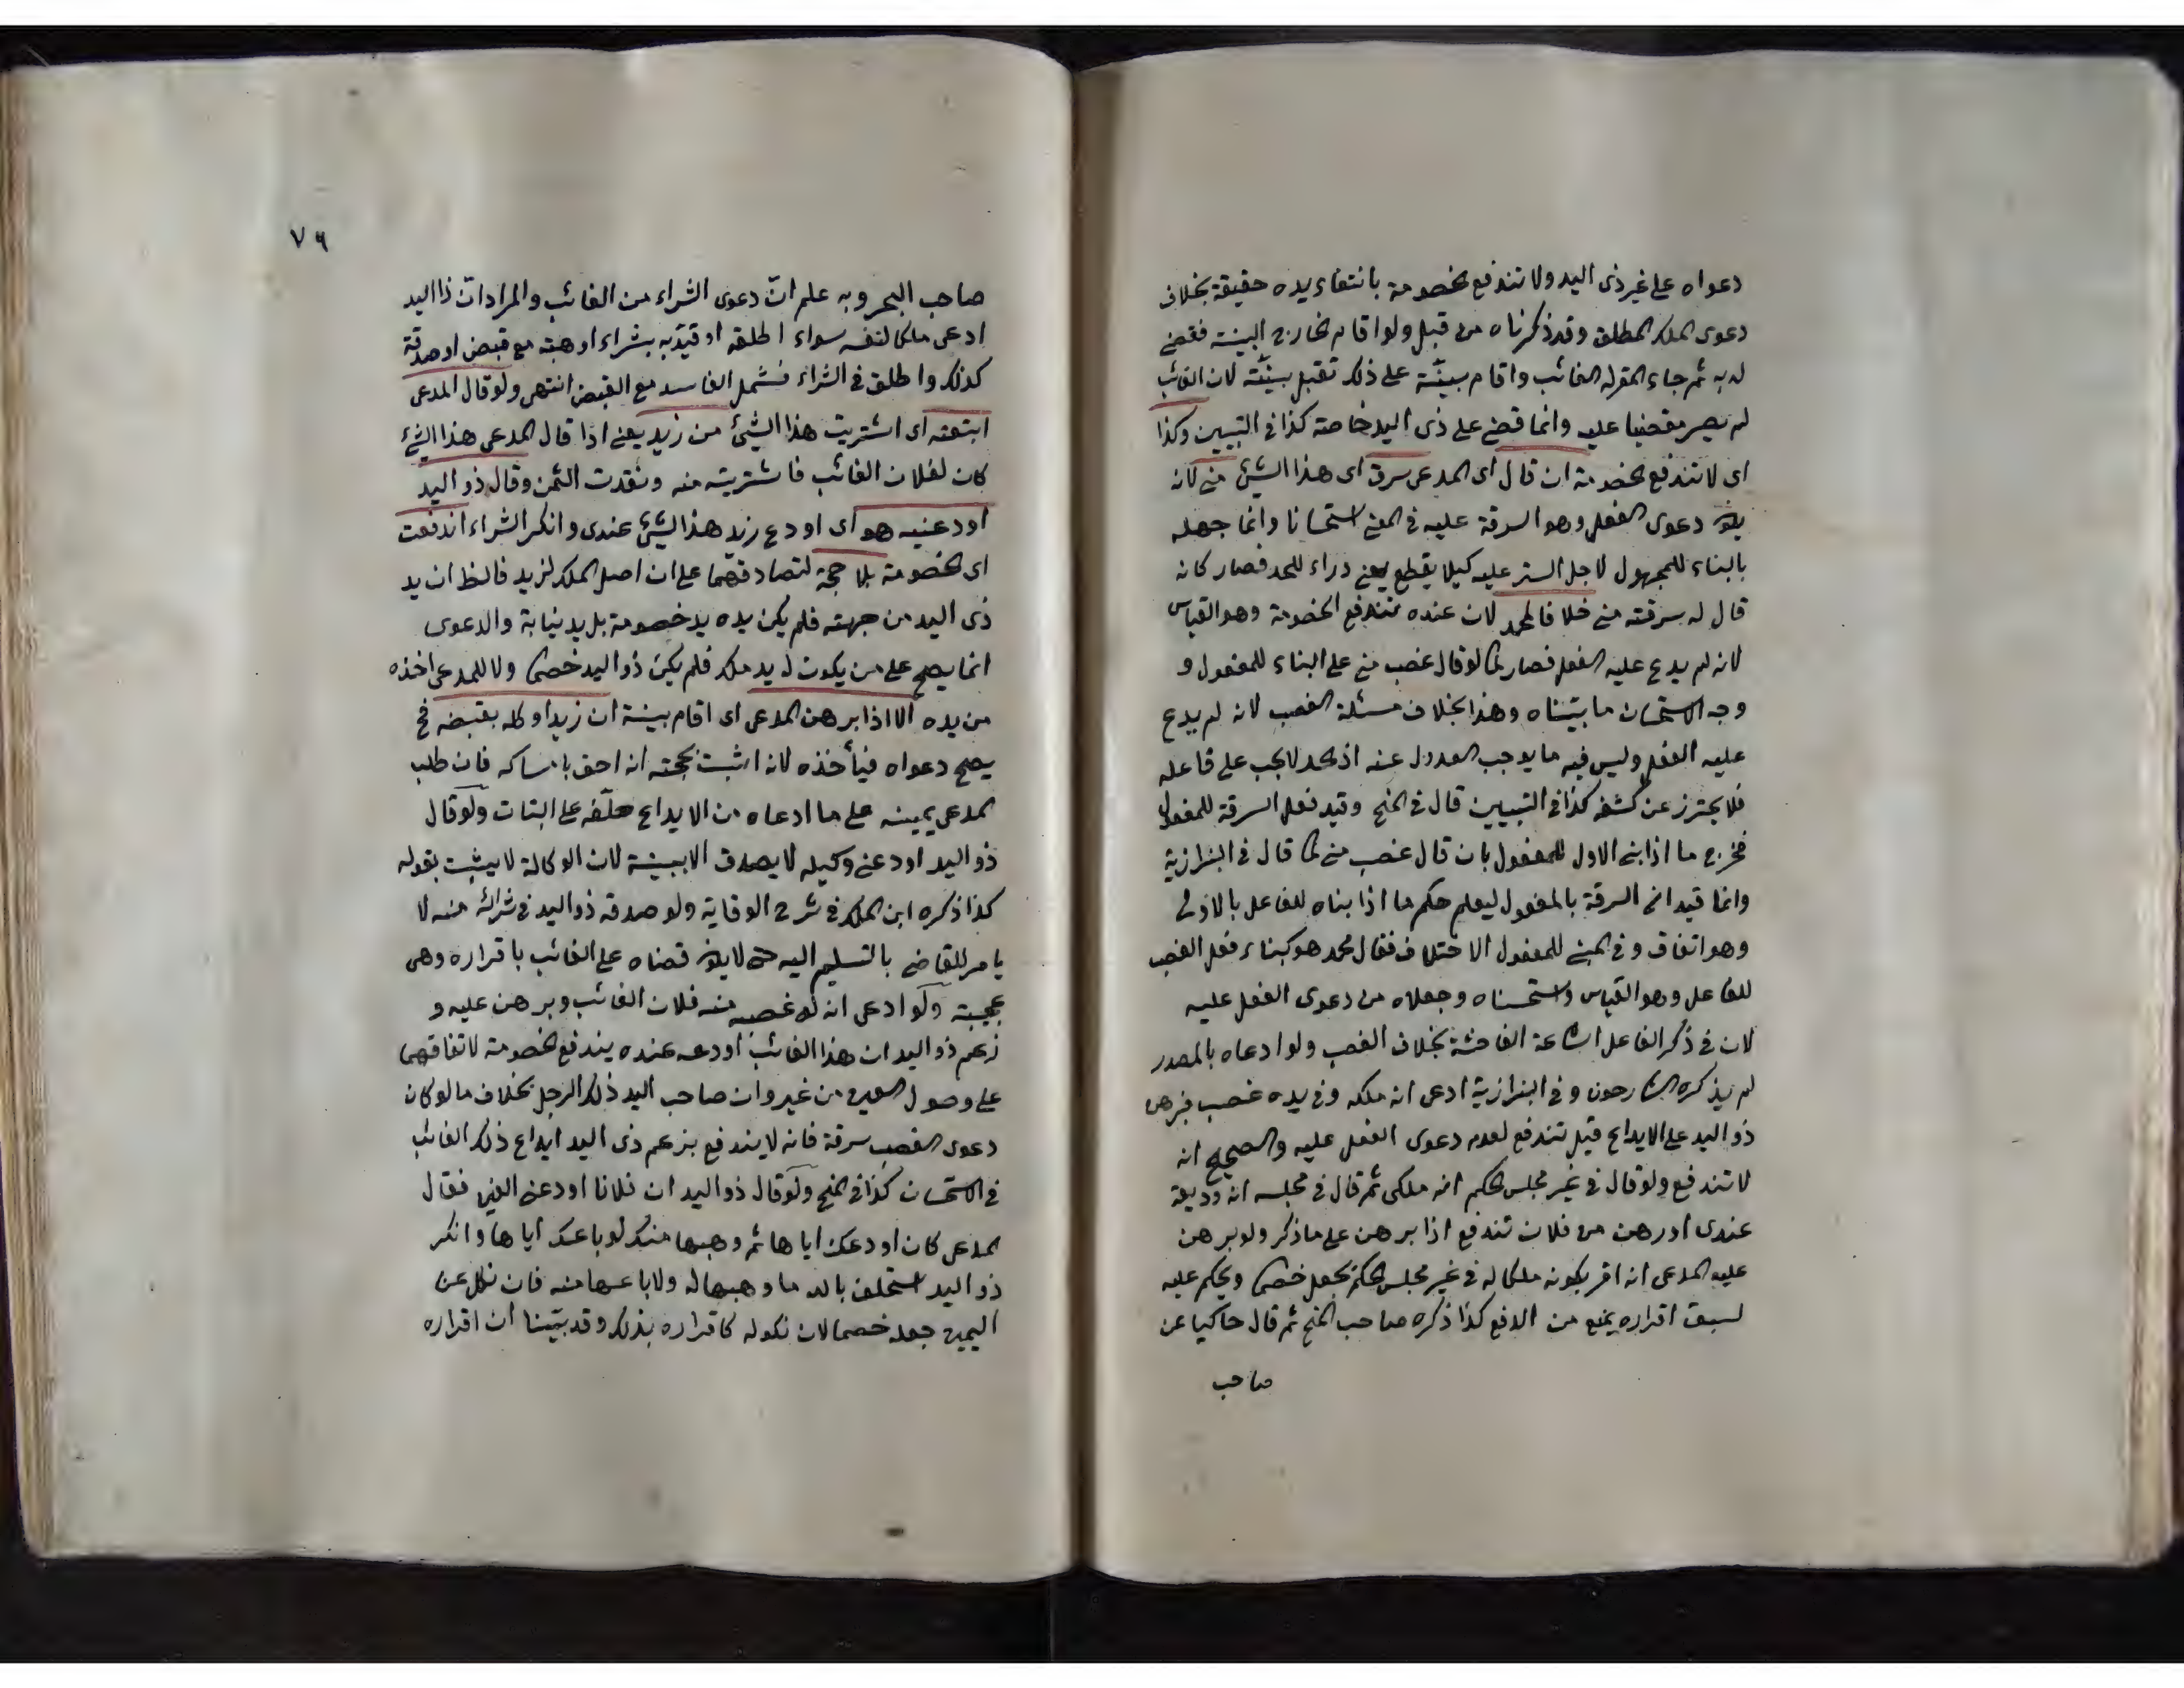 دعواه على غير ذى اليد ولا تندفع الخصومة بانتفاء يده حقيقة بخلاف
دعوى الملك المطلق وقد ذكرناه من قبل ولو اقام الخارج البينة فقضى
له به ثم جاء المقرله الغائب واقام ببينة على ذلك تقبل بينته لان الغائب
لم يصر مقضيا عليه وانما قضى على ذى اليد خاصة كذا فى التبيين وكذا
اى لا تندفع الخصومة ان قال اى المدعى سرق اى هذا الشئ منى لانه
دعوى الفعل وهو السرقة عليه فى المعنى استحسانا وانما جهله
بالبناء للمجهول لاجل الستر عليه كيلا يقطع يعنى دراء للحد فصار كانه
قال له سرقته منى خلافا لمحمد لان عنده تندفع الخصومة وهو القياس
لانه لم يدع عليه الفعل فصار كما لو قال غصب منى على البناء للمفعول و
وجه الاستحسان ما بيناه وهذا بخلاف مسئلة الغصب لانه لم يدع
عليه الفعل وليس فيه ما يوجب العدول عنه اذ الحد لا يجب على فاعله
فلا يحترز عن كشفه كذا فى التبيين قال فى المنح وقيد فعل السرقة للمفعول
فخرج ما اذا بنى الاول للمفعول بان قال غصب منى كما قال فى البزازية
وانما قيد انى السرقة بالمفعول ليعلم حكم ما اذا بناه للفاعل بالاولى
وهو اتفاق وفى المبنى للمفعول الاختلاف فقال محمد هو كبناء فعل الغصب
للفاعل وهو القياس واستحسناه وجعلاه من دعوى الفعل عليه
لان فى ذكر الفاعل اشاعة الفاحشة بخلاف الغصب ولو ادعاه بالمصدر
لم يذكره الشارحون وفى البزازية ادعى انه ملكه وفى يده غصب فبرهن
ذو اليد على الايداع قيل تندفع لعدم دعوى الفعل عليه والصحيح انه
لا تندفع ولو قال فى غير مجلس الحكم انه ملكى ثم قال فى مجلسه انه وديعة
عندى او رهن من فلان تندفع اذا برهن على ما ذكر ولو برهن
عليه المدعى انه اقر بكونه ملكا له فى غير مجلس الحكم يجعل خصما ويحكم عليه
لسبق اقراره يمنع من الدفع كذا ذكره صاحب المنح ثم قال حاكيا عن
صاحب
٧٦
صاحب البحر وبه علم انّ دعوى الشراء من الغائب والمراد انّ ذا اليد
ادعى ملكا لنفسه سواء اطلقه او قيّده بشراء او هبة مع قبض او صدقة
كذلك واطلق فى الشراء فشمل الفاسد مع القبض انتهى ولو قال المدعى
ابتعته اى اشتريت هذا الشئ من زيد يعنى اذا قال المدعى هذا الشئ
كان لفلان الغائب فاشتريته منه ونقدت الثمن وقال ذو اليد
اودعنيه هو اى اودع زيد هذا الشئ عندى وانكر الشراء اندفعت
اى الخصومة بلا حجة لتصادقهما على ان اصل الملك لزيد فالظ ان يد
ذى اليد من جهته فلم يكن يده يد خصومة بل يد نيابة والدعوى
انما يصح على من يكون له يد ملك فلم يكن ذو اليد خصما ولا للمدعى اخذه
من يده الا اذا برهن المدعى اى اقام بينة ان زيدا وكله بقبضه فح
يصح دعواه فيأخذه لانه اثبت بحجته انه احق بامساكه فان طلب
المدعى يمينه على ما ادعاه من الايداع حلّفه على البتات ولو قال
ذو اليد اودعنى وكيله لا يصدق الا ببينة لان الوكالة لا يثبت بقوله
كذا ذكره ابن الملك فى شرح الوقاية ولو صدقه ذو اليد فى شرائه منه لا
يامر للقاضى بالتسليم اليه حتى لا يكون قضاه على الغائب باقراره وهى
عجيبة ولو ادعى انه له غصبه منه فلان الغائب وبرهن عليه و
زعم ذو اليد ان هذا الغائب اودعه عنده يندفع الخصومة لاتفاقهما
على وصول العين من غيره وان صاحب اليد ذلك الرجل بخلاف ما لو كان
دعوى الغصب سرقة فانه لا يندفع بزعم ذى اليد ايداع ذلك الغائب
فى الاستحسان كذا فى المنح ولو قال ذو اليد ان فلانا اودعنى العين فقال
المدعى كان اودعك اياها ثم وهبها منك او باعك اياها وانكر
ذو اليد استحلف بالله ما وهبها له ولا باعها منه فان نكل عن
اليمين جعله خصما لان نكوله كاقراره بذلك وقد بيّنا ان اقراره